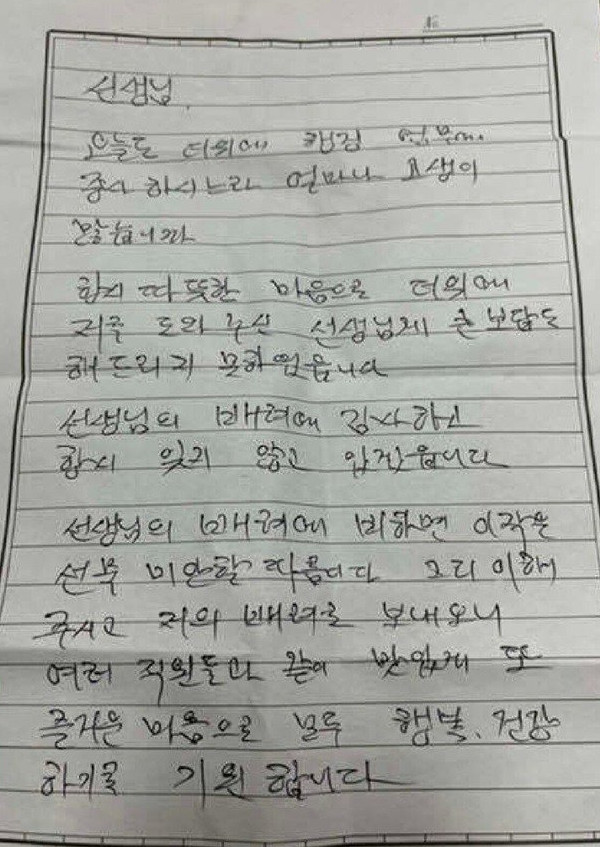 No
선생님
오늘도 더위에 행정 업무에
종사 하시느라 얼마나 고생이
많습니까
항시 따뜻한 마음으로 더위에
저를 도와 주신 선생님께 큰 보답도
해 드리지 못하였읍니다
선생님의 배려에 감사하고
항시 잊지 않고 있겠읍니다
선생님의 배려에 비하면 이 작은
선물 미안할 따름이다 그리 이해
주시고 저의 배려로 보내오니
여러 직원들과 같이 맛있게 또
즐거운 마음으로 모두 행복, 건강
하기를 기원합니다